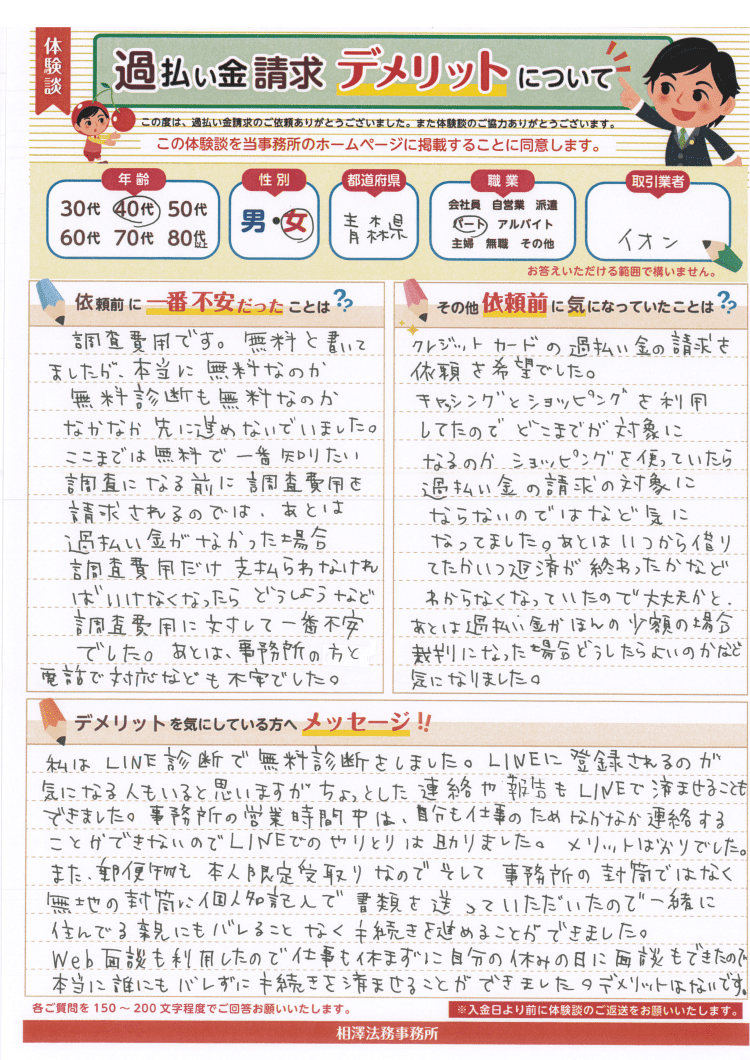 体験談
過払い金請求 デメリットについて
この度は、過払い金請求のご依頼ありがとうございました。また体験談のご協力ありがとうございます。
この体験談を当事務所のホームページに掲載することに同意します。
年齢
30代 40代 50代
60代 70代 80代以上
性別
男・女
都道府県
青森県
職業
会社員 自営業 派遣
パート アルバイト
主婦 無職 その他
取引業者
イオン
お答えいただける範囲で構いません。
依頼前に一番不安だったことは??
調査費用です。無料と書いて
ましたが、本当に無料なのか
無料診断も無料なのか
なかなか先に進めないでいました。
ここまでは無料で一番知りたい
調査になる前に調査費用を
請求されるのでは、あとは
過払い金がなかった場合
調査費用だけ支払らわなければ
ばいけなくなったらどうしようなど
調査費用に対して一番不安
でした。あとは、事務所の方と
電話で対応なども不安でした。
その他依頼前に気になっていたことは??
クレジットカードの過払い金の請求を
依頼を希望でした。
キャッシングとショッピングを利用
してたのでどこまでが対象に
なるのかショッピングを使っていたら
過払い金の請求の対象に
ならないのではなど気に
なってました。あとはいつから借り
てたかいつ返済が終わったかなど
わからなくなっていたので大丈夫かと、
あとは過払い金がほんの少額の場合
裁判になった場合どうしたらよいのかなど
気になりました。
デメリットを気にしている方へ メッセージ!!
私はLINE診断で無料診断をしました。LINEに登録されるのが
気になる人もいると思いますがちょっとした連絡や報告もLINEで済ませることも
できました。事務所の営業時間中は、自分も仕事のためなかなか連絡する
ことができないのでLINEでのやりとりは助りました。メリットばかりでした。
また、郵便物も本人限定受取りなのでそして事務所の封筒ではなく
無地の封筒に個人名記入で書類を送っていただいたので一緒に
住んでる親にもバレることなく手続きを進めることができました。
Web面談も利用したので仕事も休まずに自分の休みの日に面談もできたので
本当に誰にもバレずに手続きを済ませることができました。デメリットはないです。
各ご質問を150〜200文字程度でご回答お願いいたします。
※入金日より前に体験談のご返送をお願いいたします。
相澤法務事務所